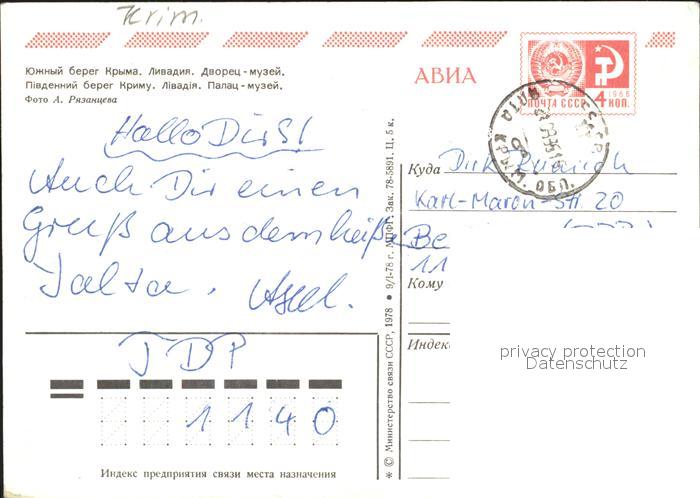 Krim.
Южный берег Крыма. Ливадия. Дворец-музей.
Південний берег Криму. Лівадія. Палац-музей.
Фото А. Рязанцева
АВИА
ПОЧТА СССР
1966
4 КОП.
Hallo Dirk!
Auch Dir einen
Gruß aus dem heißen
Jalta. Axel.
© Министерство связи СССР, 1978 • 9/I-78 г. МПФГ. Зак. 78-5891. Ц. 5 к.
Куда Dirk
Karl-Maron-Str. 20
Be
11
Кому
Индекс
1140
Индекс предприятия связи места назначения
privacy protection
Datenschutz